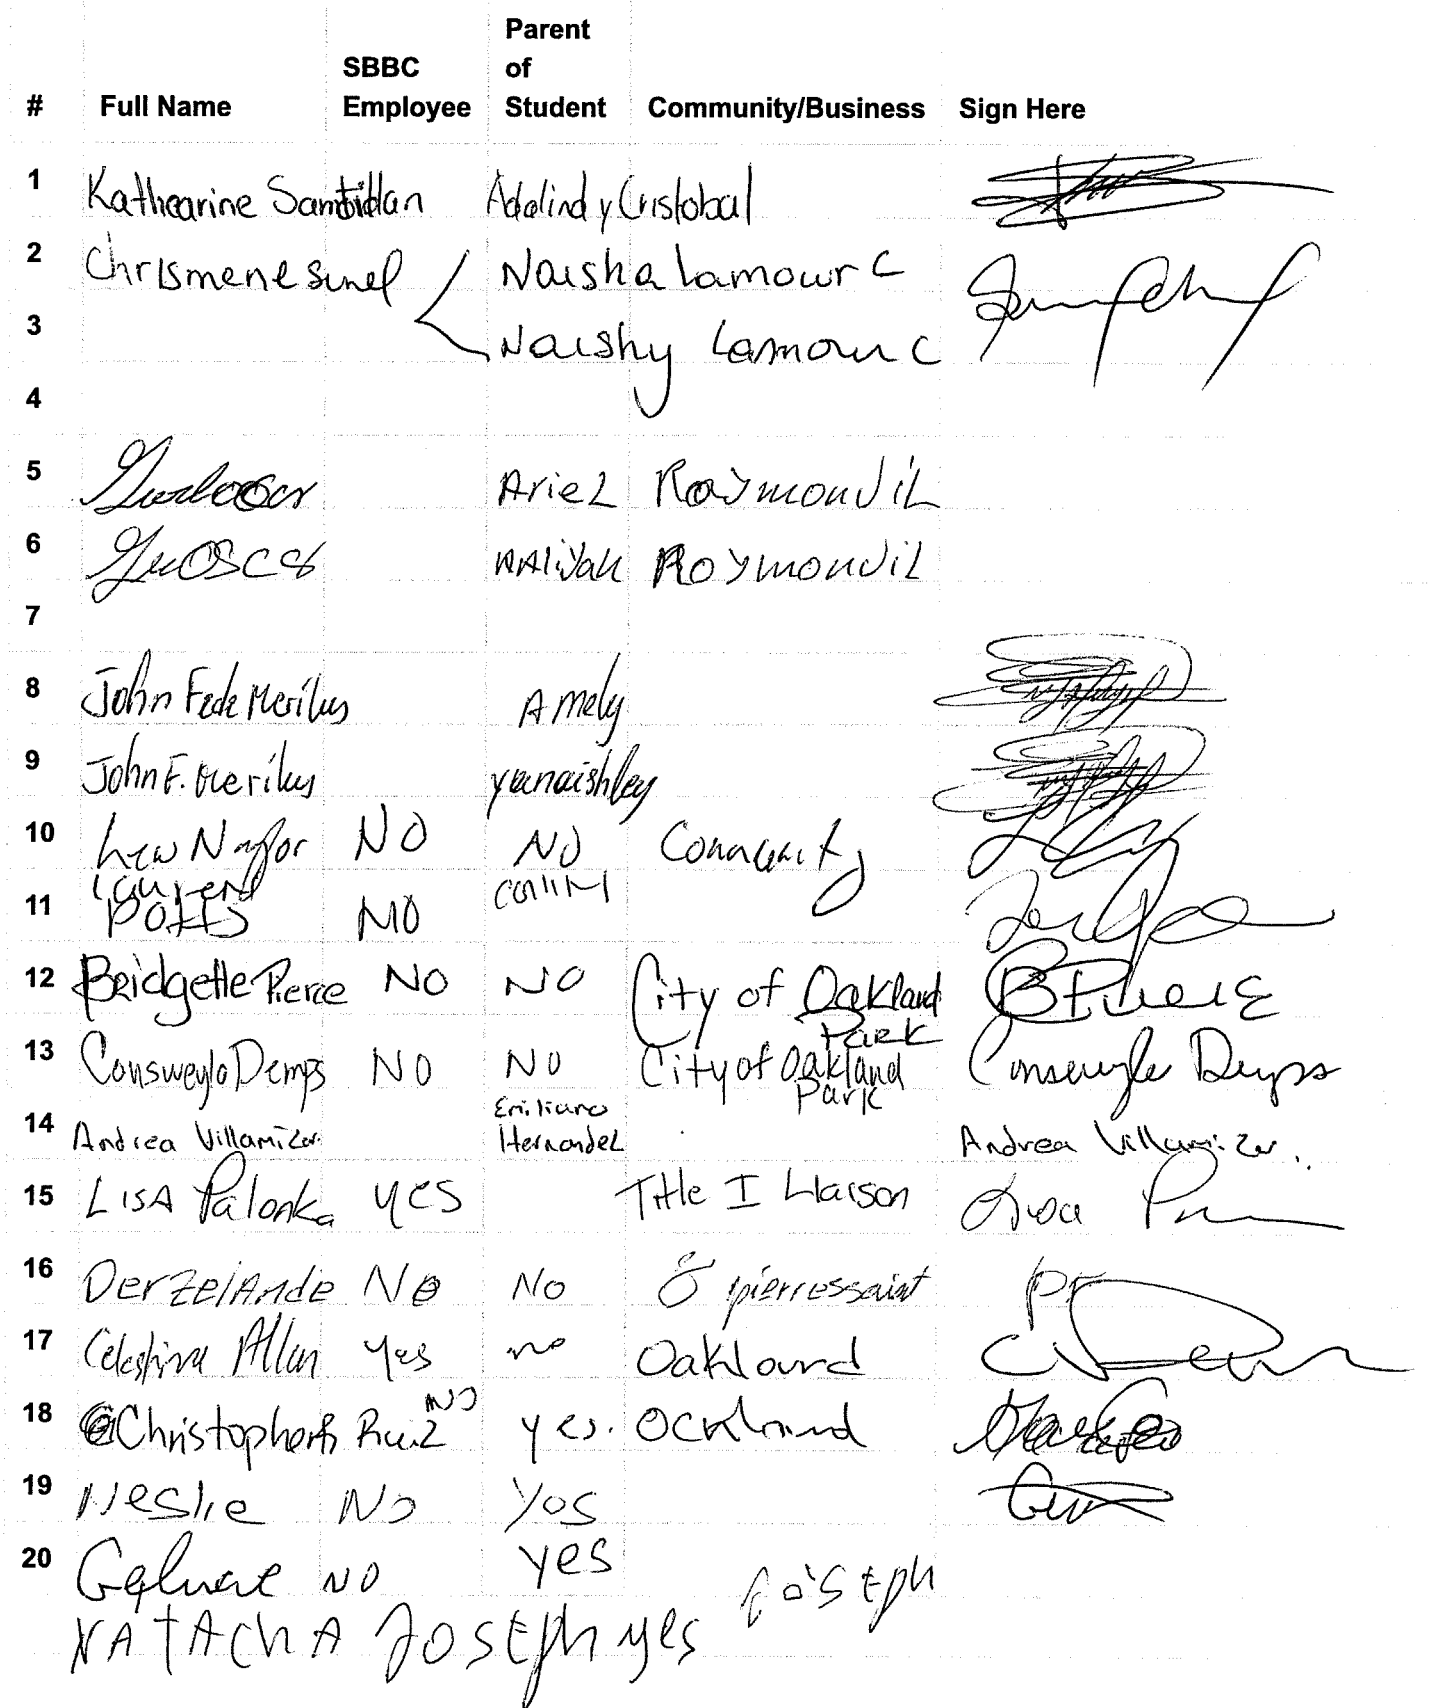 # Full Name SBBC Employee Parent of Student Community/Business Sign Here
1 Kathearine Adalind y Cristobal
2 Chrismene Sinel Naisha Lamour C
3 Naishy Lamour C
4
5 Ariel Raymondil
6 AAliyah Roymondil
7
8 John Fede Merilus Amely
9 John F. Merilus yanaishley
10 Lew Naylor NO NO Community
11 Lauren Potts NO comm
12 Bridgette Pierce NO NO City of Oakland Park BPierce
13 Consweylo Demps NO NO City of Oakland Park Consweylo Demps
14 Andrea Villamizar Emiliano Hernandez Andrea Villamizar
15 LISA Palonka yes Title I Liaison Lisa
16 DerzelAnde No No pierressaint
17 Celestina Allen Yes no Oakland
18 Christopher Ruiz NO yes. Ockland
19 Neslie No Yos
20 NO yes Joseph
NATAChA JosEph yes